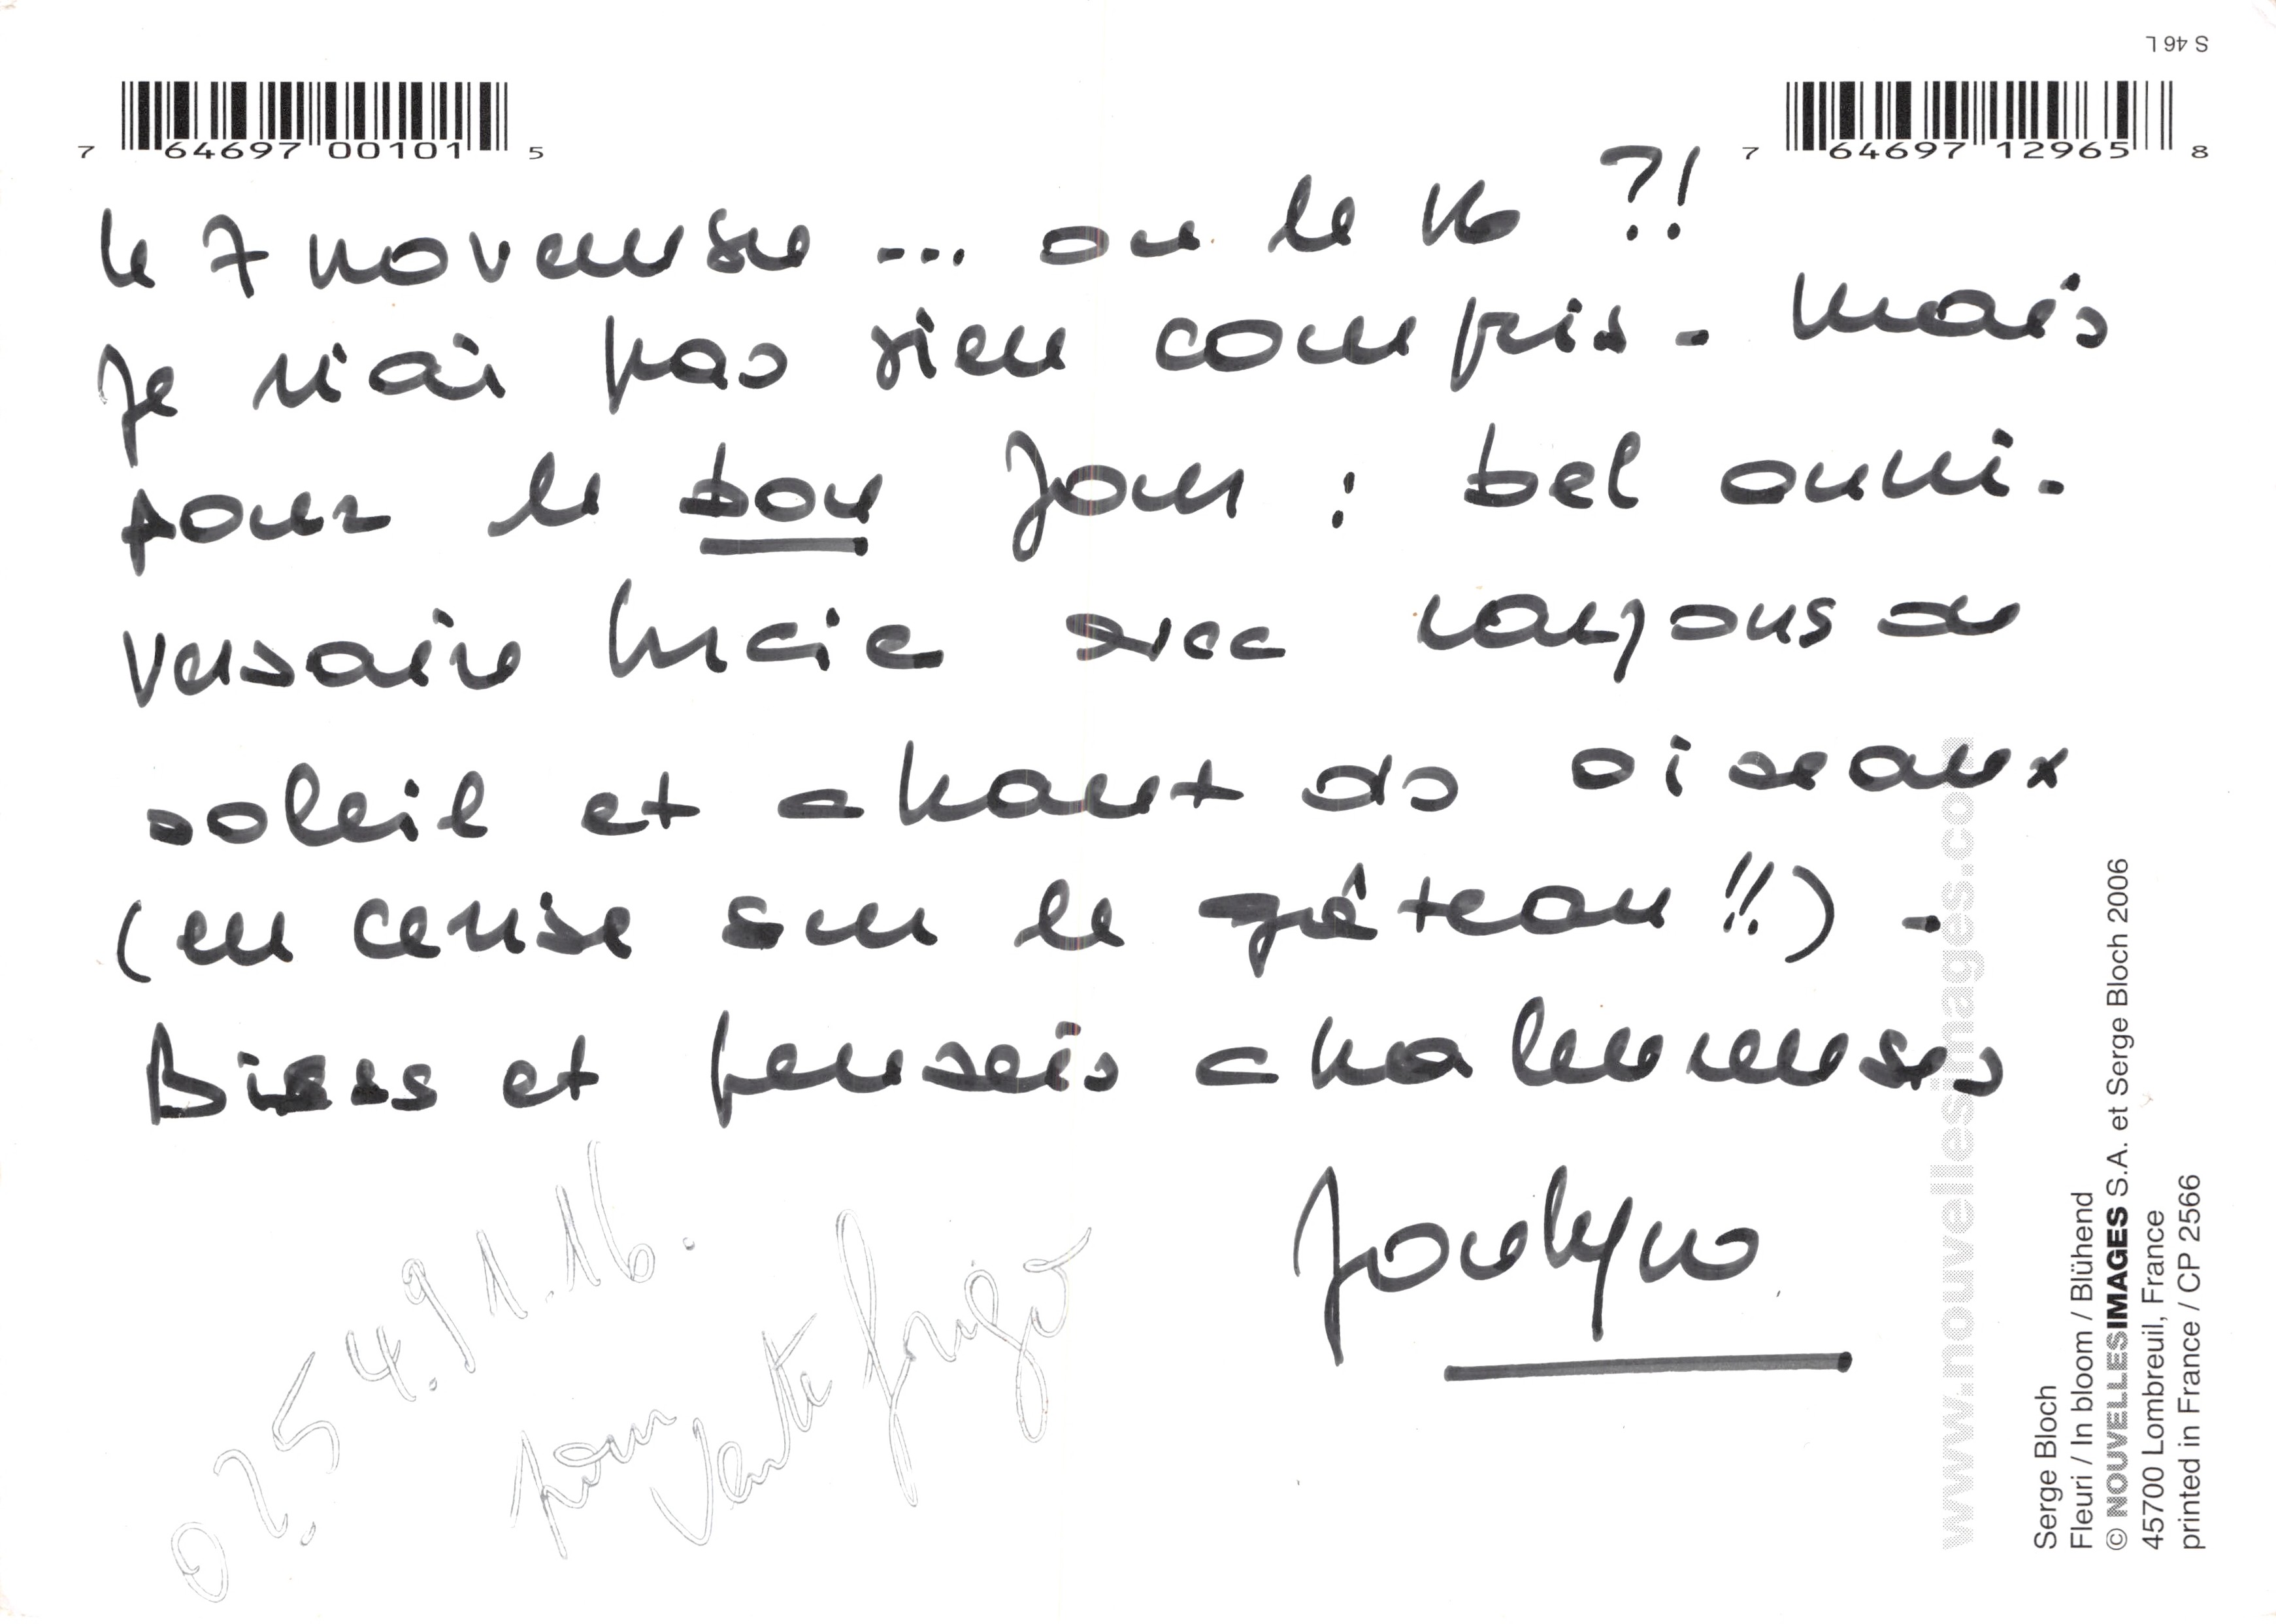 S 46 L
7 64697 00101 5
7 64697 12965 8
le 7 novembre ... ou le 16 ?!
Je n'ai pas bien compris - Mais
pour le bon jour : bel anni-
versaire Lucie avec rayons de
soleil et chant des oiseaux
(en cerise sur le gâteau !!) -
Bises et pensées chaleureuses
Jocelyne
02.54.91.16.
pour
Vente frigo
www.nouvellesimages.com
Serge Bloch
Fleuri / In bloom / Blühend
© NOUVELLESIMAGES S.A. et Serge Bloch 2006
45700 Lombreuil, France
printed in France / CP 2566